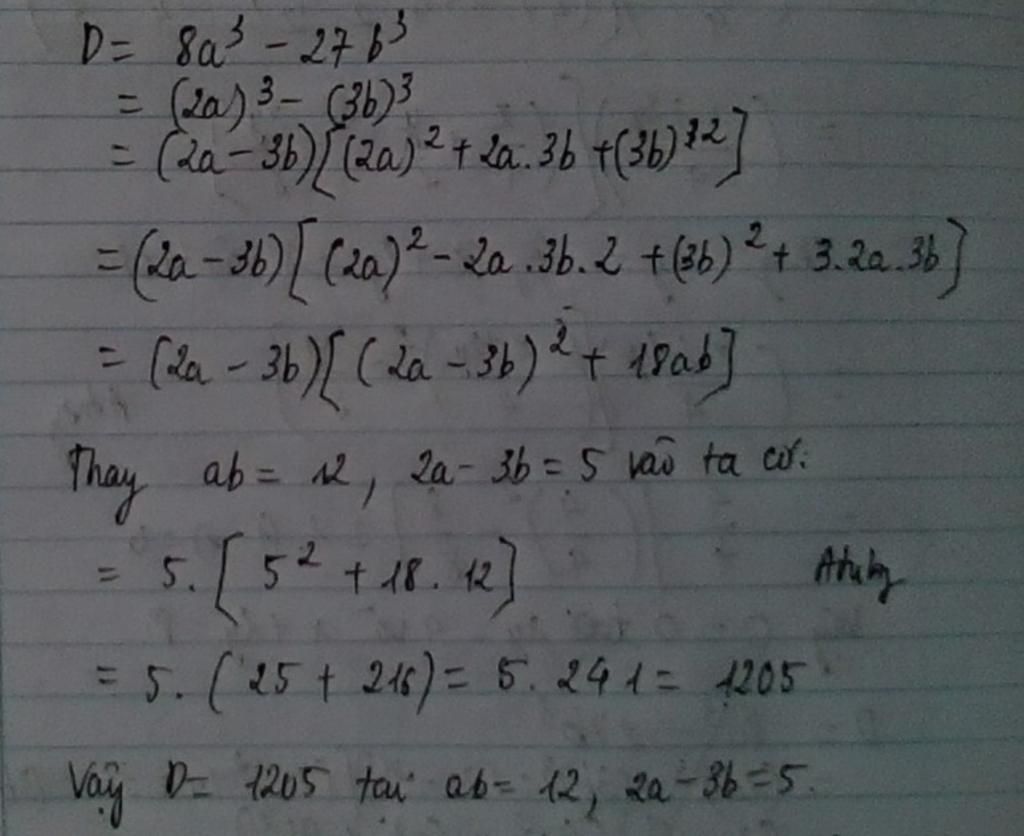 D = 8a³ - 27b³
= (2a)³ - (3b)³
= (2a - 3b)[(2a)² + 2a.3b + (3b)²]
= (2a - 3b)[(2a)² - 2a.3b.2 + (3b)² + 3.2a.3b]
= (2a - 3b)[(2a - 3b)² + 18ab]
Thay ab = 12, 2a - 3b = 5 vào ta có:
= 5.[5² + 18.12]
= 5.(25 + 216) = 5.241 = 1205
Vậy D = 1205 tại ab = 12, 2a - 3b = 5.